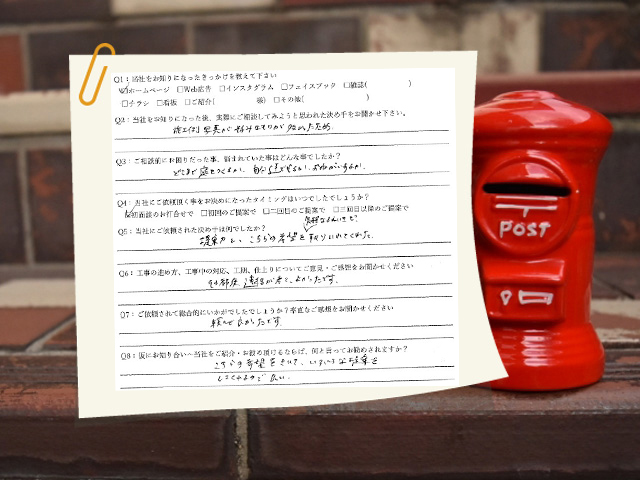 Q1：当社をお知りになったきっかけを教えて下さい
☑ホームページ □Web広告 □インスタグラム □フェイスブック □雑誌( )
□チラシ □看板 □ご紹介( 様) □その他( )
Q2：当社をお知りになった後、実際にご相談してみようと思われた決め手をお聞かせ下さい。
施工例 写真が 好みなものが 多かったため
Q3：ご相談前にお困りだった事、悩まれていた事はどんな事でしたか？
どこまで
Q4：当社にご依頼頂く事をお決めになったタイミングはいつでしたでしょうか？
☑初面談のお打合せで □初回のご提案で □二回目のご提案で □三回目以降のご提案で
Q5：当社にご依頼された決め手は何でしたか？
提案力と、こちらの希望を 取り入れてくれた。
Q6：工事の進め方、工事中の対応、工期、仕上りについてご意見・ご感想をお聞かせください
その都度、連絡が来て、よかったです。
Q7：ご依頼されて総合的にいかがでしたでしょうか？率直なご感想をお聞かせください
頼んで良かったです。
Q8：仮にお知り合いへ当社をご紹介・お勧め頂けるならば、何と言ってお勧めされますか？
こちらの希望をきいて、いろいろな提案を
してくれるので 良い。
POST